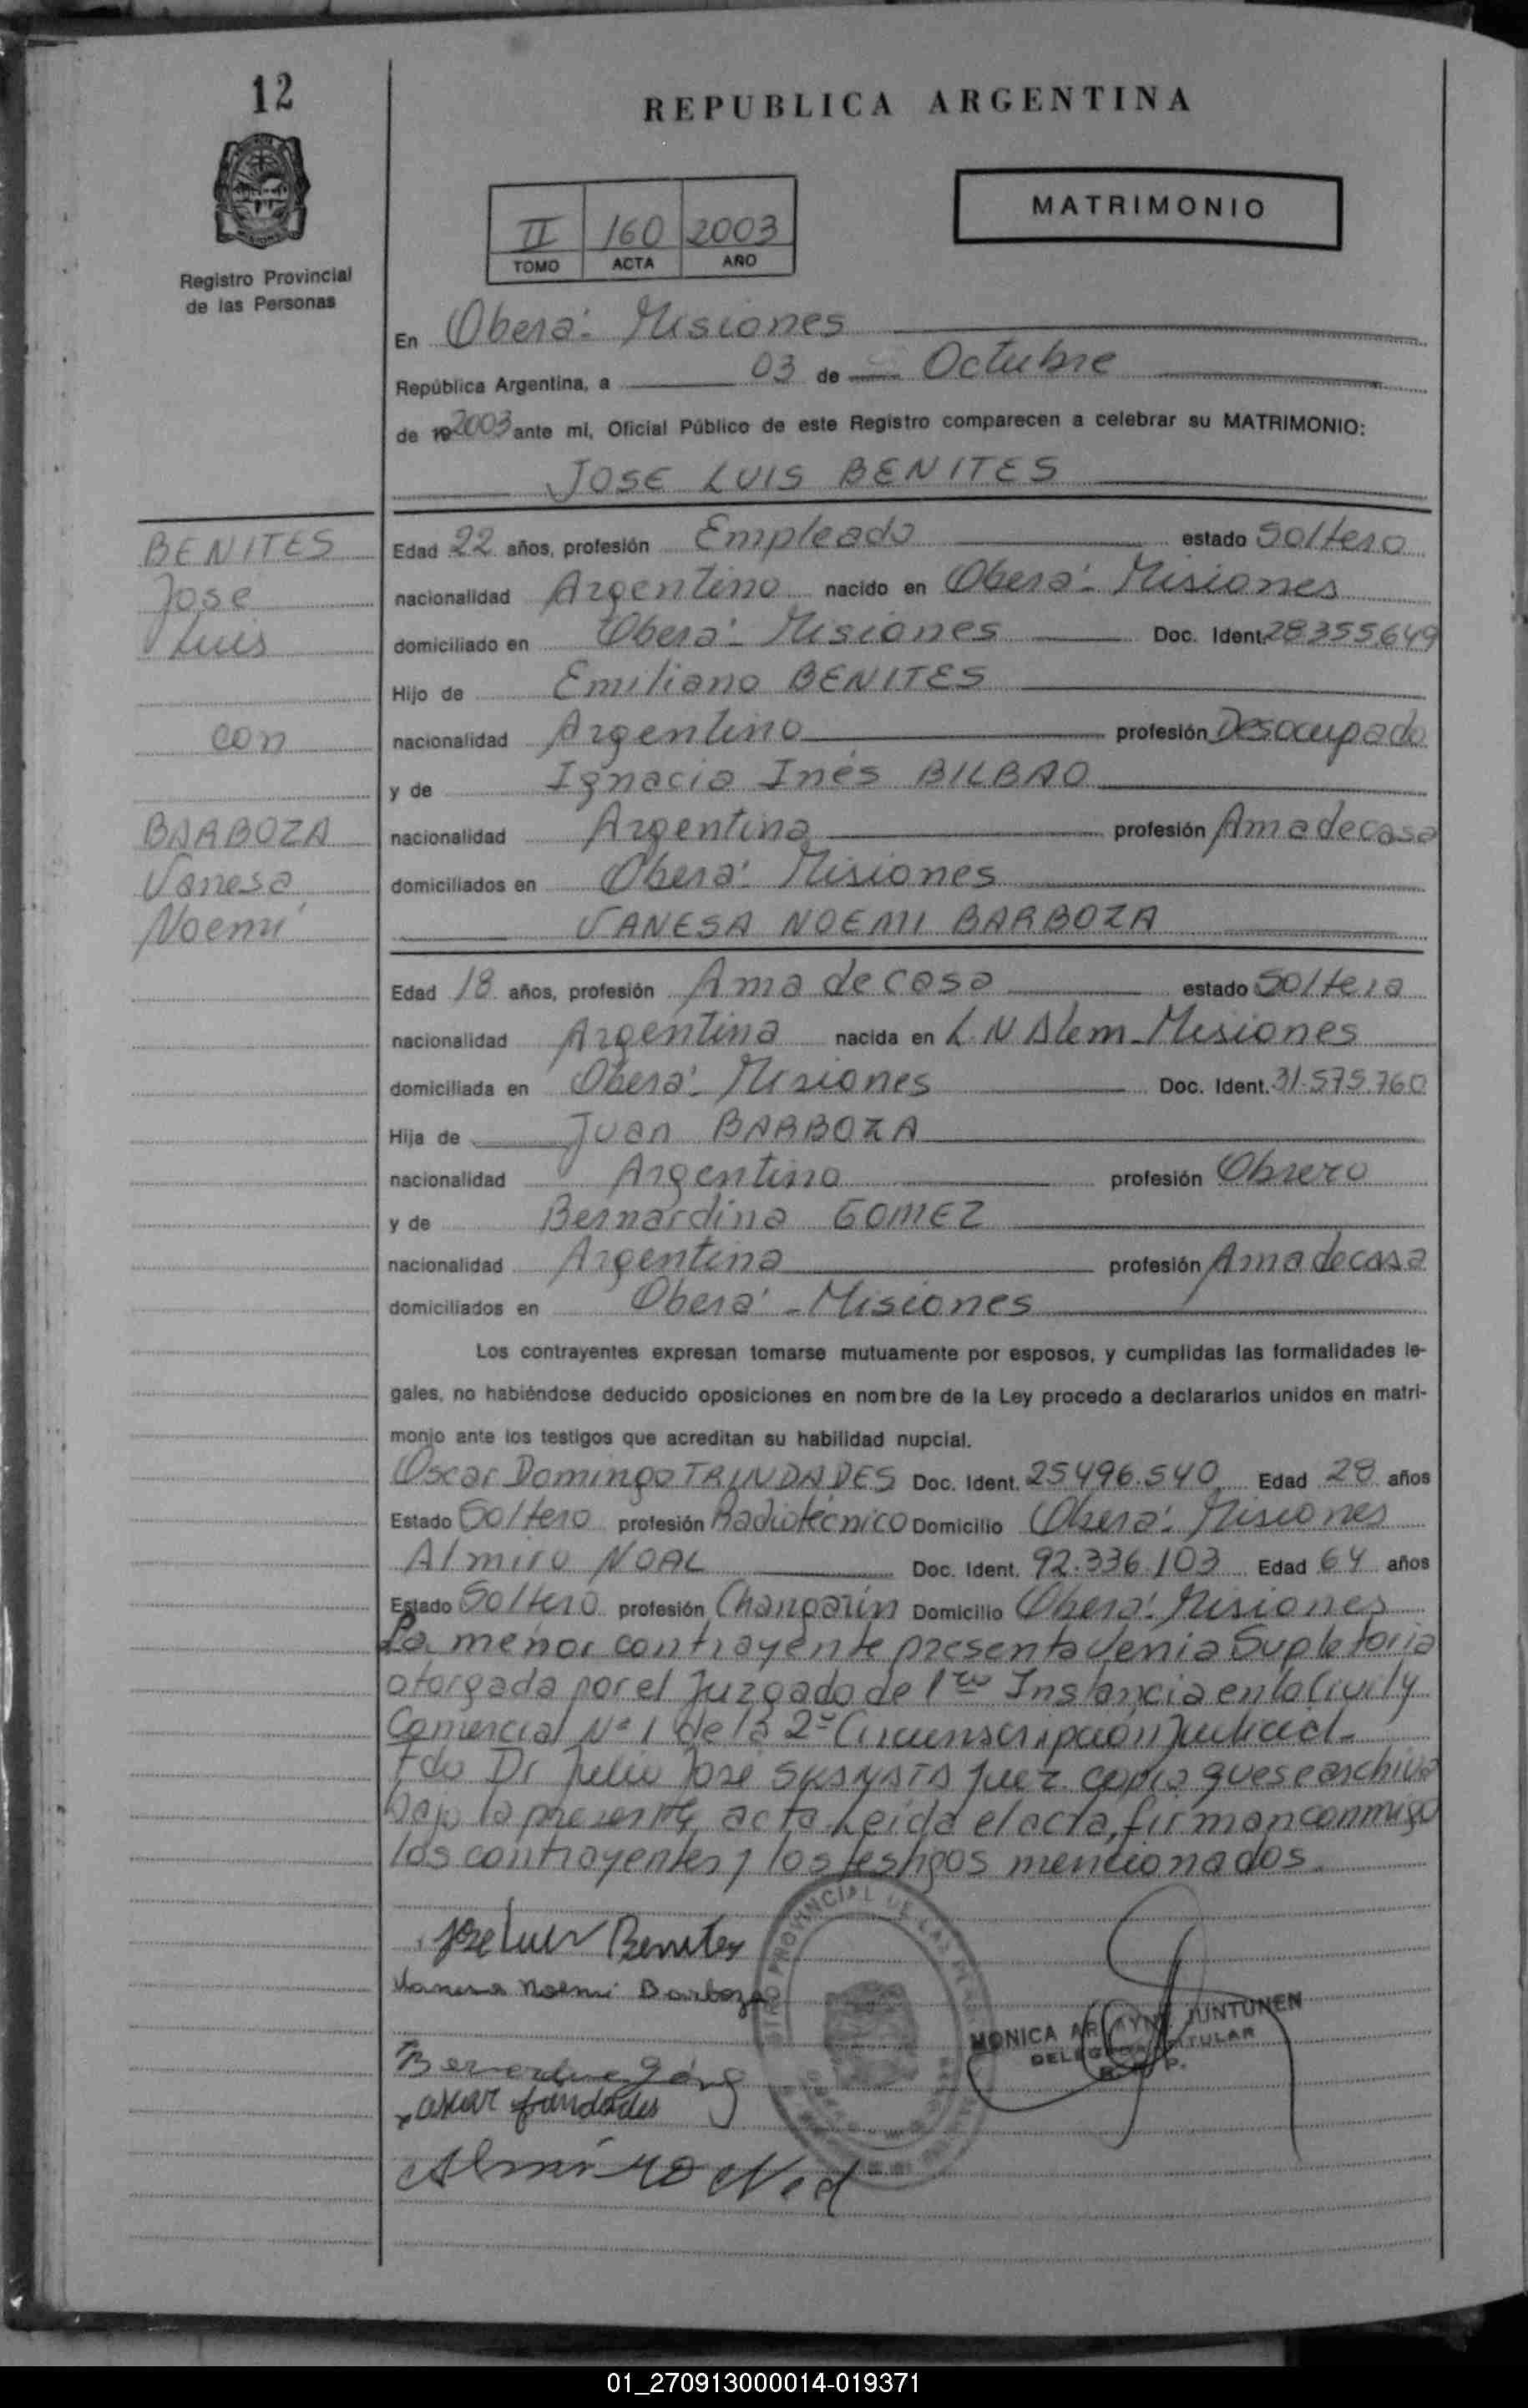 12
REPUBLICA ARGENTINA
MATRIMONIO
II 160 2003
TOMO ACTA AÑO
Registro Provincial
de las Personas
En Oberá - Misiones
República Argentina, a 03 de Octubre
de 19 2003 ante mi, Oficial Público de este Registro comparecen a celebrar su MATRIMONIO:
JOSE LUIS BENITES
BENITES
José
Luis
con
BARBOZA
Vanesa
Noemí
Edad 22 años, profesión Empleado estado Soltero
nacionalidad Argentino nacido en Oberá - Misiones
domiciliado en Oberá - Misiones Doc. Ident. 28.355.649
Hijo de Emiliano BENITES
nacionalidad Argentino profesión Desocupado
y de Ignacia Inés BILBAO
nacionalidad Argentina profesión Ama de casa
domiciliados en Oberá - Misiones
VANESA NOEMI BARBOZA
Edad 18 años, profesión Ama de casa estado Soltera
nacionalidad Argentina nacida en L.N Alem - Misiones
domiciliada en Oberá - Misiones Doc. Ident. 31.575.760
Hija de Juan BARBOZA
nacionalidad Argentino profesión Obrero
y de Bernardina GOMEZ
nacionalidad Argentina profesión Ama de casa
domiciliados en Oberá - Misiones
Los contrayentes expresan tomarse mutuamente por esposos, y cumplidas las formalidades le-
gales, no habiéndose deducido oposiciones en nombre de la Ley procedo a declararlos unidos en matri-
monio ante los testigos que acreditan su habilidad nupcial.
Oscar Domingo TRINDADES Doc. Ident. 25.496.540 Edad 28 años
Estado Soltero profesión Radiotécnico Domicilio Oberá - Misiones
Almiro NOAL Doc. Ident. 92.336.103 Edad 64 años
Estado Soltero profesión Changarín Domicilio Oberá - Misiones
La menor contrayente presenta Venia Supletoria
otorgada por el Juzgado de 1ra Instancia en lo Civil y
Comercial Nº 1 de la 2º Circunscripción Judicial -
Fdo Dr Julio José Juez copia que se archiva
bajo la presente acta Leída el acta, firman conmigo
los contrayentes y los testigos mencionados.
Jose Luis Benites
Vanesa Noemi Barboza
PROVINCIAL DE LAS
MONICA JUNTUNEN
TITULAR
oscar trindades
Almiro Noal
01_270913000014-019371